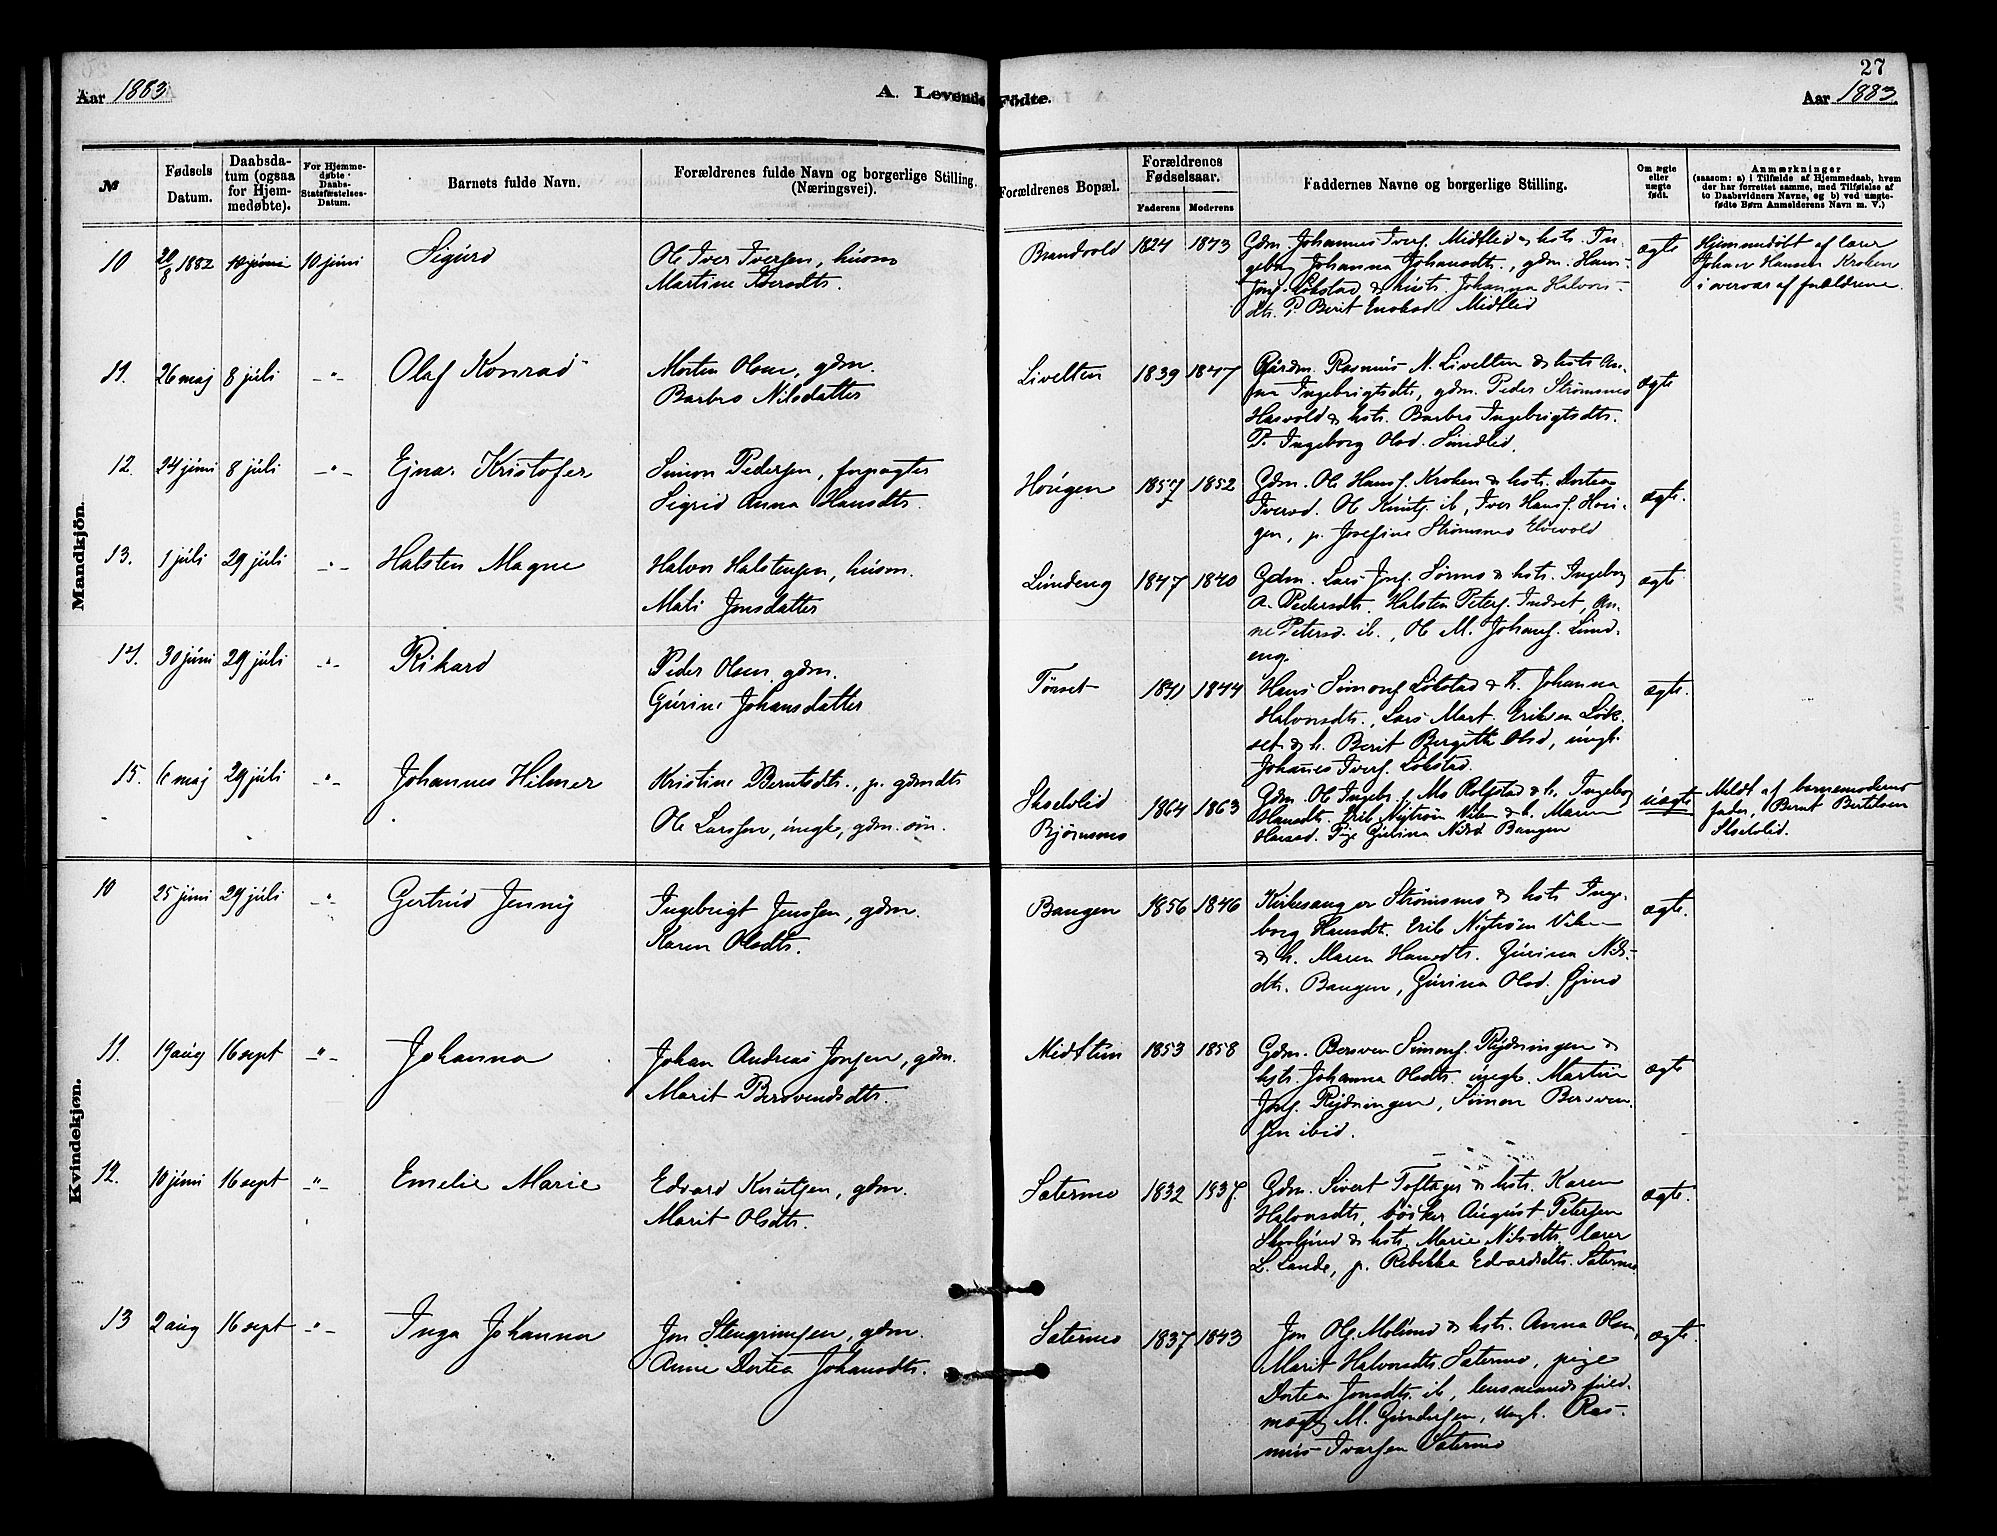 27
Aar 1883
A. Levende Fødte.
Aar 1883.
№
Fødsels Datum.
Daabsdatum (ogsaa for Hjemmedøbte).
For Hjemmedøbte Daabs-Statsfæstelses-Datum.
Barnets fulde Navn.
Forældrenes fulde Navn og borgerlige Stilling. (Næringsvei).
Forældrenes Bopæl.
Forældrenes Fødselsaar.
Faderens Moderens
Faddernes Navne og borgerlige Stilling.
Om ægte eller uægte født.
Anmærkninger
(saasom: a) i Tilfælde af Hjemmedaab, hvem der har forrettet samme, med Tilføielse af to Daabsvidners Navne, og b) ved uægtefødte Børn Anmelderens Navn m. V.)
Mandkjön.
10 20/8 1882 10 júni 10 júni Sigúrd
Ole Iver Iversen, húsm.
Martine Iversdtr.
Brandvold 1824 1843
Gdm. Johannes Iversf. Midtlid & hstr. In-
geborg Johanna Johansdtr., gdm. Hans
Jonsf. Løkstad & hústr. Johanna Halvors-
dtr. P. Berit Midtlid
ægte
Hjemmedøbt af lærer
Johan Hansen Kroken
i overvær af forældrene.
11. 26 maj 8 júli -"- Olaf Konrad
Morten Olsen, gdm.
Barbro Nilsdatter
Livelten 1839 1847
Gårdm. Rasmús N. Livelten & hstr. An-
na Ingebrigtsdtr., gdm. Peder Strømsnes
Hasvold & hstr. Barbro Ingebrigtsdtr.
P. Ingeborg Olsd. Súndlid.
ægte
12. 24 júni 8 júli -"- Ejnar Kristofer
Simon Pedersen, forpagter
Sigrid Anna Hansdtr.
Hoúgen 1857 1852
Gdm. Ole Hansf. Kroken & hstr. Dortea
Iversd. Ole Knútf. ib, Iver Hansf. Hoú-
gen, p. Josefine Strømsnes Elvevold
ægte.
13. 1 júli 29 júli -"- Halsten Magne
Halvor Halstensen, húsm.
Mali Jonsdatter
Lúndeng 1847 1840
Gdm. Lars Jonsf. Sørmo & hstr. Ingeborg
A. Pedersdtr. Halsten Petersf. Indset, An-
ne Petersd. ib., Ole M. Johansf. Lúnd-
eng.
ægte
14. 30 júni 29 júli -"- Rikard
Peder Olsen, gdm.
Gúrine Johansdatter
Tønset 1841 1844
Hans Simonsf. Løkstad & h. Johanna
Halvorsdtr., Lars Mart. Eriksen Løk-
set & h. Berit Bergitte Olsd, úngk.
Johannes Iversf. Løkstad.
ægte.
15. 6 maj 29 júli -"- Johannes Hilmer
Kristine Berntsdtr., p. gdmdtr
Ole Larssen, úngk., gdm. søn.
Skoelvlid
Bjørnsmo
1864 1863
Gdm. Ole Ingebr.f. Mo Rolfstad & h. Ingeborg
Hansdtr. Erik Nytrøen & h. Maren
Hansd. Pige Gúrina Nilsd Bangen
úægte
Meldt af barnemoderens
fader, Bernt Bertilsen
Skoelvlid.
Kvindekjøn.
10 25 júni 29 júli -"- Gertrúd Jenny
Ingebrigt Jenssen, gdm.
Karen Olsdtr.
Bangen 1856 1846
Kirkesanger Strømsmo & hstr. Inge-
borg Hansdtr. Erik Nytrøen
& h. Maren Hansdtr. Gúrina Nils-
dtr. Bangen, Gúrina Olsd.
ægte.
11. 19 aúg 16 sept -"- Johanna
Johan Andreas Jonsen, gdm.
Marit Bersvendsdtr.
Midtlien 1853 1858
Gdm. Bersven Simonsf. Rydningen &
hstr. Johanna Olsdtr. úngk. Martin
Jonsf. Rydningen, Simon Bersven-
sen ibid.
ægte
12. 10 júni 16 sept -"- Emelie Marie
Edvard Knútsen, gdm.
Marit Olsdtr.
Satermo 1832 1837
Gdm. Sivert Toftager & hstr. Karen
Halvorsdtr., bøsker Aúgust Petersen
& hstr. Marie Nilsdtr. lærer
L. Lande, p. Rebekka Edvardsdtr. Satermo
ægte.
13 2 aúg 16 sept -"- Inga Johanna
Jon Stengrimsen, gdm.
Anne Dortea Johansdtr.
Satermo 1837 1843
Jon Olsf. Molúnd & hstr. Anna Olsen,
Marit Halvorsdtr. Satermo, pige
Dortea Jonsdtr. ib, lensmandsfúld-
mægtig M. Gúndersen, úngk. Ras-
mús Ivarsen Satermo
ægte.